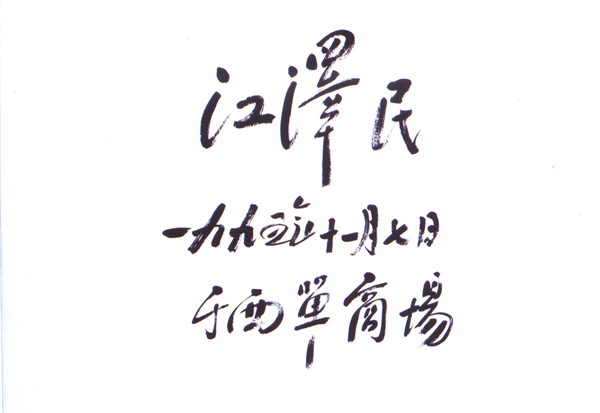 江澤民
一九九五年十一月七日
于西單商場